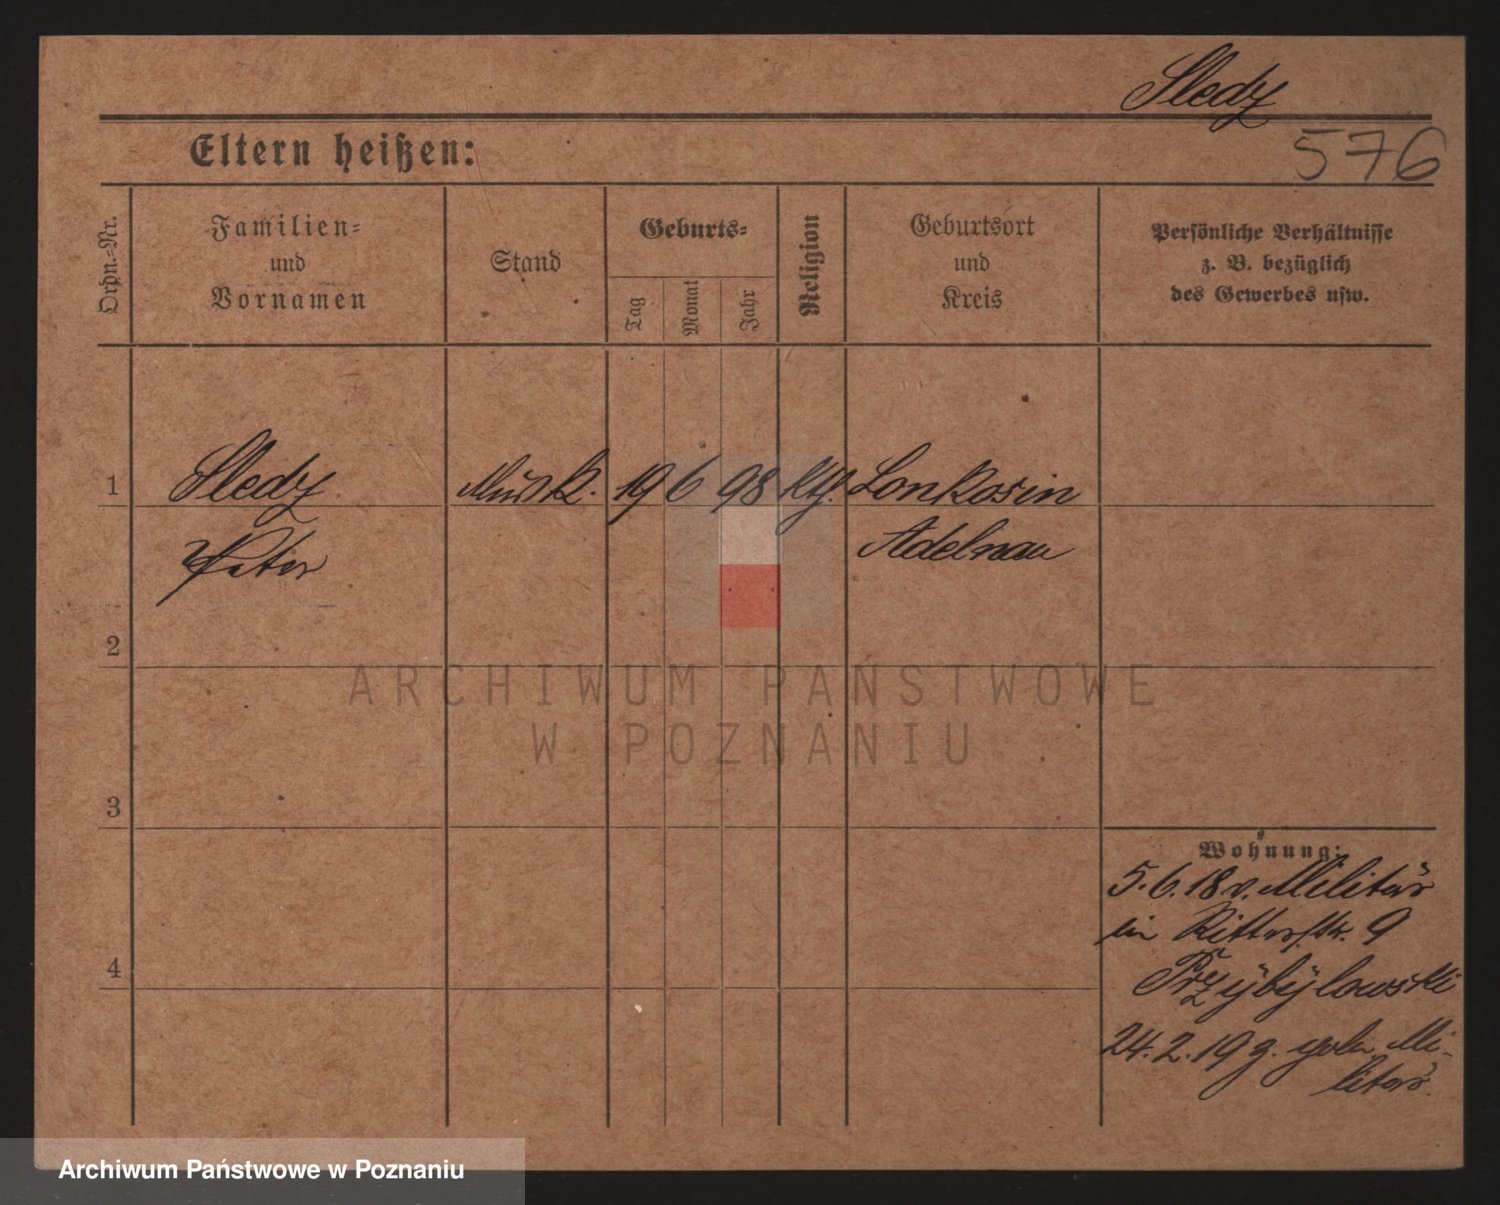 Sledz
576
Eltern heißen:
Ordn.-Nr.
Familien=
und
Vornamen
Stand
Geburts=
Tag
Monat
Jahr
Religion
Geburtsort
und
Kreis
Persönliche Verhältnisse
z. B. bezüglich
des Gewerbes usw.
1
Sledz
Musk. 19 6 98 Kth. Lonkosin
Peter
Adelnau
2
3
4
Wohnung:
5.6.18 v. Militär
in Ritterstr. 9
Przÿbÿlowski
24.2.19 g. poln. Mi-
litär.
ARCHIWUM PAŃSTWOWE
W POZNANIU
Archiwum Państwowe w Poznaniu